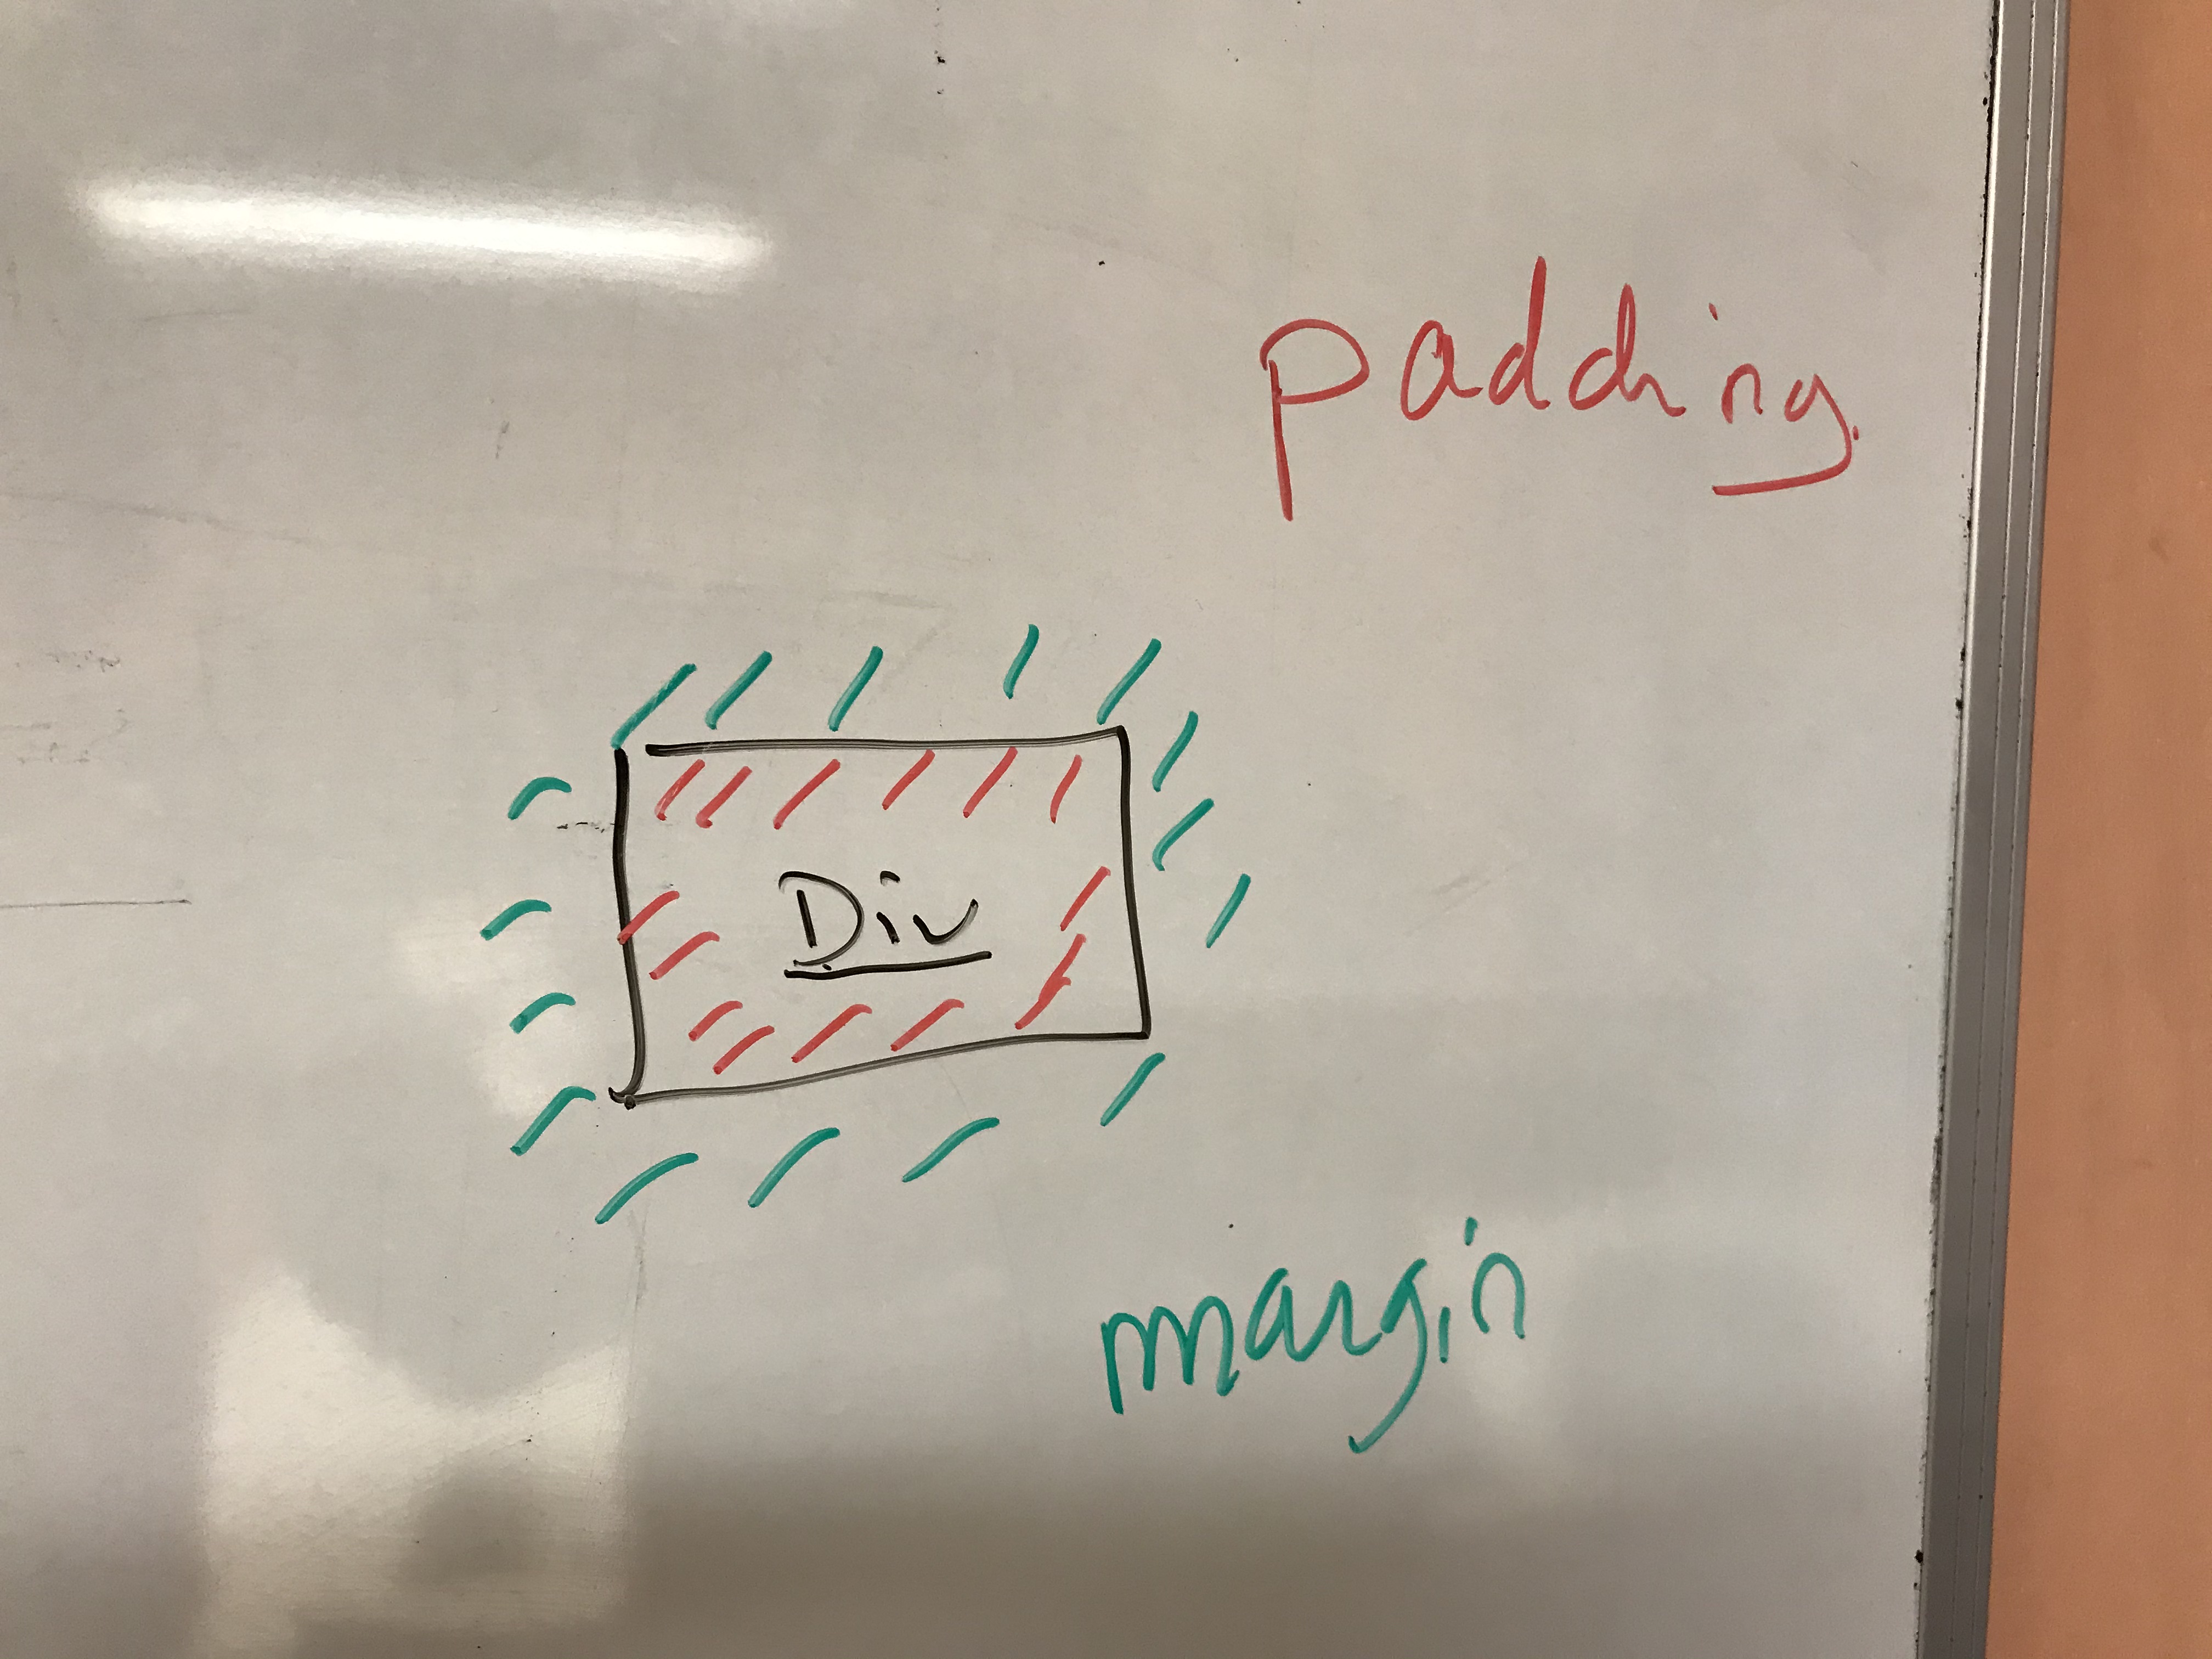 padding
Div
margin